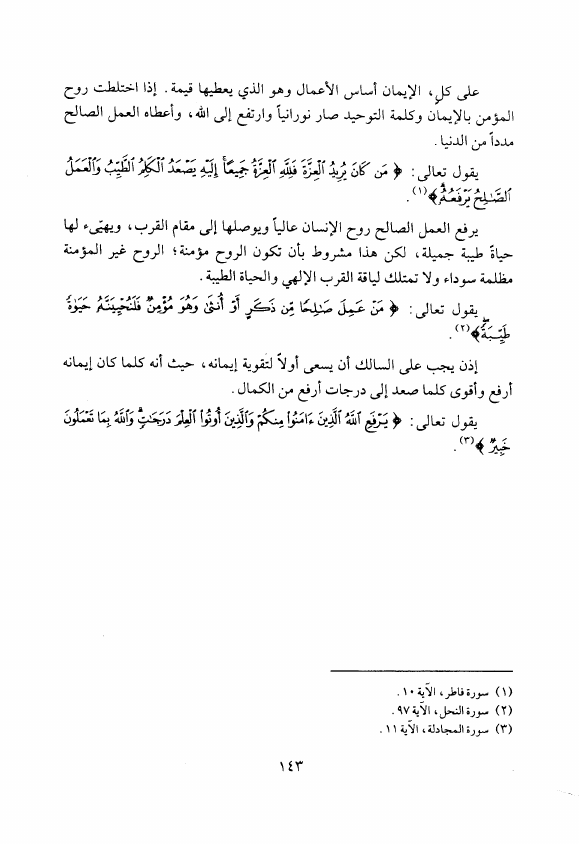 على كلٍ، الإيمان أساس الأعمال وهو الذي يعطيها قيمة. إذا اختلطت روح
المؤمن بالإيمان وكلمة التوحيد صار نورانياً وارتفع إلى الله، وأعطاه العمل الصالح
مدداً من الدنيا.
يقول تعالى: ﴿ مَن كَانَ يُرِيدُ ٱلْعِزَّةَ فَلِلَّهِ ٱلْعِزَّةُ جَمِيعًا إِلَيْهِ يَصْعَدُ ٱلْكَلِمُ ٱلطَّيِّبُ وَٱلْعَمَلُ
ٱلصَّـٰلِحُ يَرْفَعُهُۥ ﴾(١).
يرفع العمل الصالح روح الإنسان عالياً ويوصلها إلى مقام القرب، ويهيّىء لها
حياةً طيبة جميلة، لكن هذا مشروط بأن تكون الروح مؤمنة؛ الروح غير المؤمنة
مظلمة سوداء ولا تمتلك لياقة القرب الإلهي والحياة الطيبة.
يقول تعالى: ﴿ مَنْ عَمِلَ صَـٰلِحًا مِّن ذَكَرٍ أَوْ أُنثَىٰ وَهُوَ مُؤْمِنٌ فَلَنُحْيِيَنَّهُۥ حَيَوٰةً
طَيِّبَةً ﴾(٢).
إذن يجب على السالك أن يسعى أولاً لتقوية إيمانه، حيث أنه كلما كان إيمانه
أرفع وأقوى كلما صعد إلى درجات أرفع من الكمال.
يقول تعالى: ﴿ يَرْفَعِ ٱللَّهُ ٱلَّذِينَ ءَامَنُوا۟ مِنكُمْ وَٱلَّذِينَ أُوتُوا۟ ٱلْعِلْمَ دَرَجَـٰتٍ وَٱللَّهُ بِمَا تَعْمَلُونَ
خَبِيرٌ ﴾(٣).
(١) سورة فاطر، الآية ١٠.
(٢) سورة النحل، الآية ٩٧.
(٣) سورة المجادلة، الآية ١١.
١٤٣